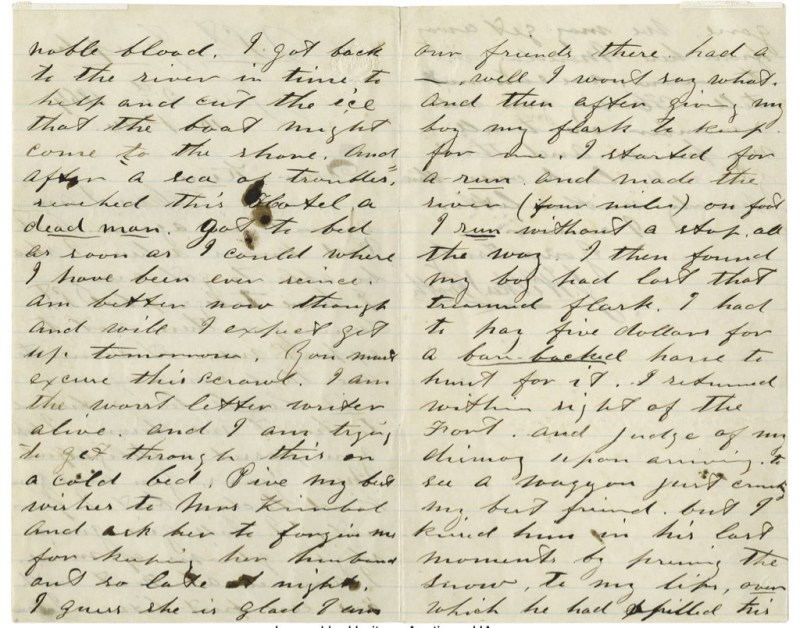 noble blood. I got back
to the river in time to
help and cut the ice
that the boat might
come to the shore. And
after a sea of troubles,
reached this Hotel a
dead man. got to bed
as soon as I could where
I have been ever seince.
am better now though
and will I expect get
up tomorrow. You must
excuse this scrawl. I am
the worst letter writer
alive. and I am trying
to get through this on
a cold bed. Give my best
wishes to Mrs Kimbal
and ask her to forgive me
for keeping her husband
out so late at night.
I guess she is glad I am
our friends there. had a
—. well I wont say what.
And then after giving my
boy my flask to keep
for me. I started for
a run and made the
river (four miles) on foot
I run without a stop all
the way. I then found
my boy had lost that
treasured flask. I had
to pay five dollars for
a bare-backed horse to
hunt for it. I returned
within sight of the
Fort. and judge of my
dismay upon arriving. to
see a waggon just
my best friend. but I
kissed him in his last
moments by pressing the
snow, to my lips, over
which he had spilled his